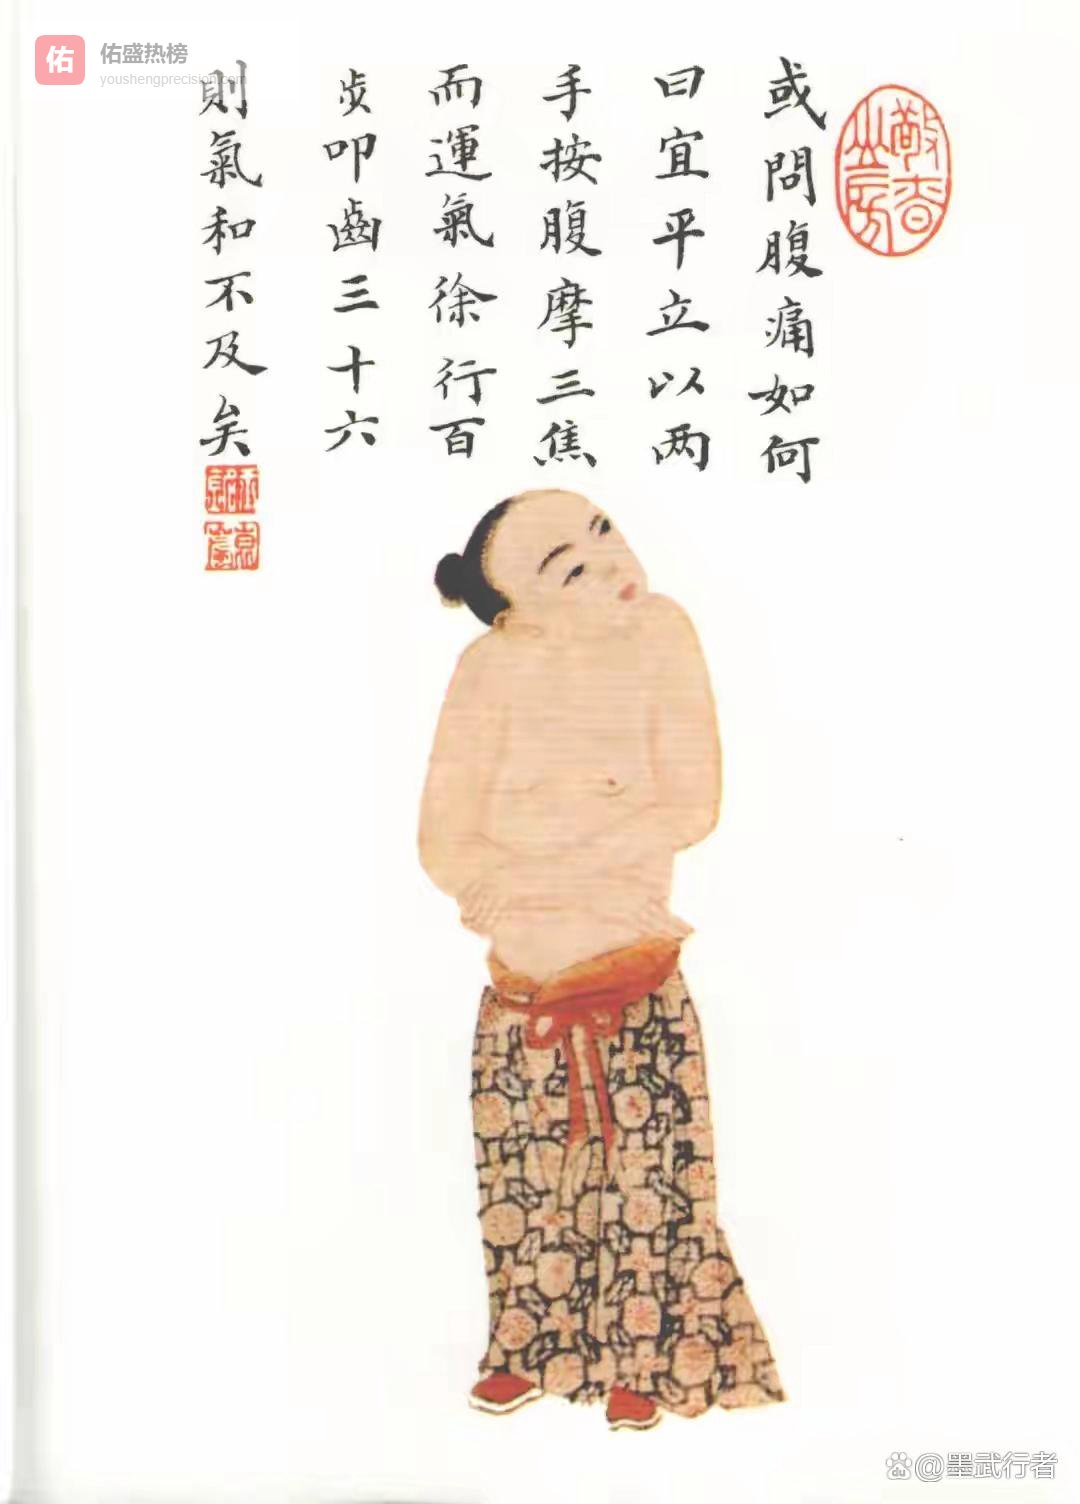 佑 佑盛热榜
youshengprecision.com
或問腹痛如何
曰宜平立以两
手按腹摩三焦
而運氣徐行百
步叩齒三十六
則氣和不及矣
du @墨武行者